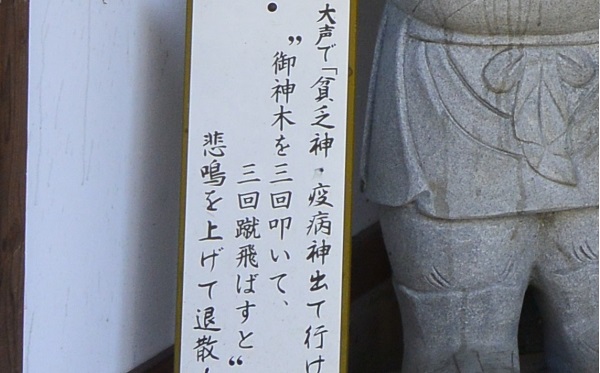 大声で「貧乏神・疫病神出て行け
〝御神木を三回叩いて、
三回蹴飛ばすと〟
悲鳴を上げて退散